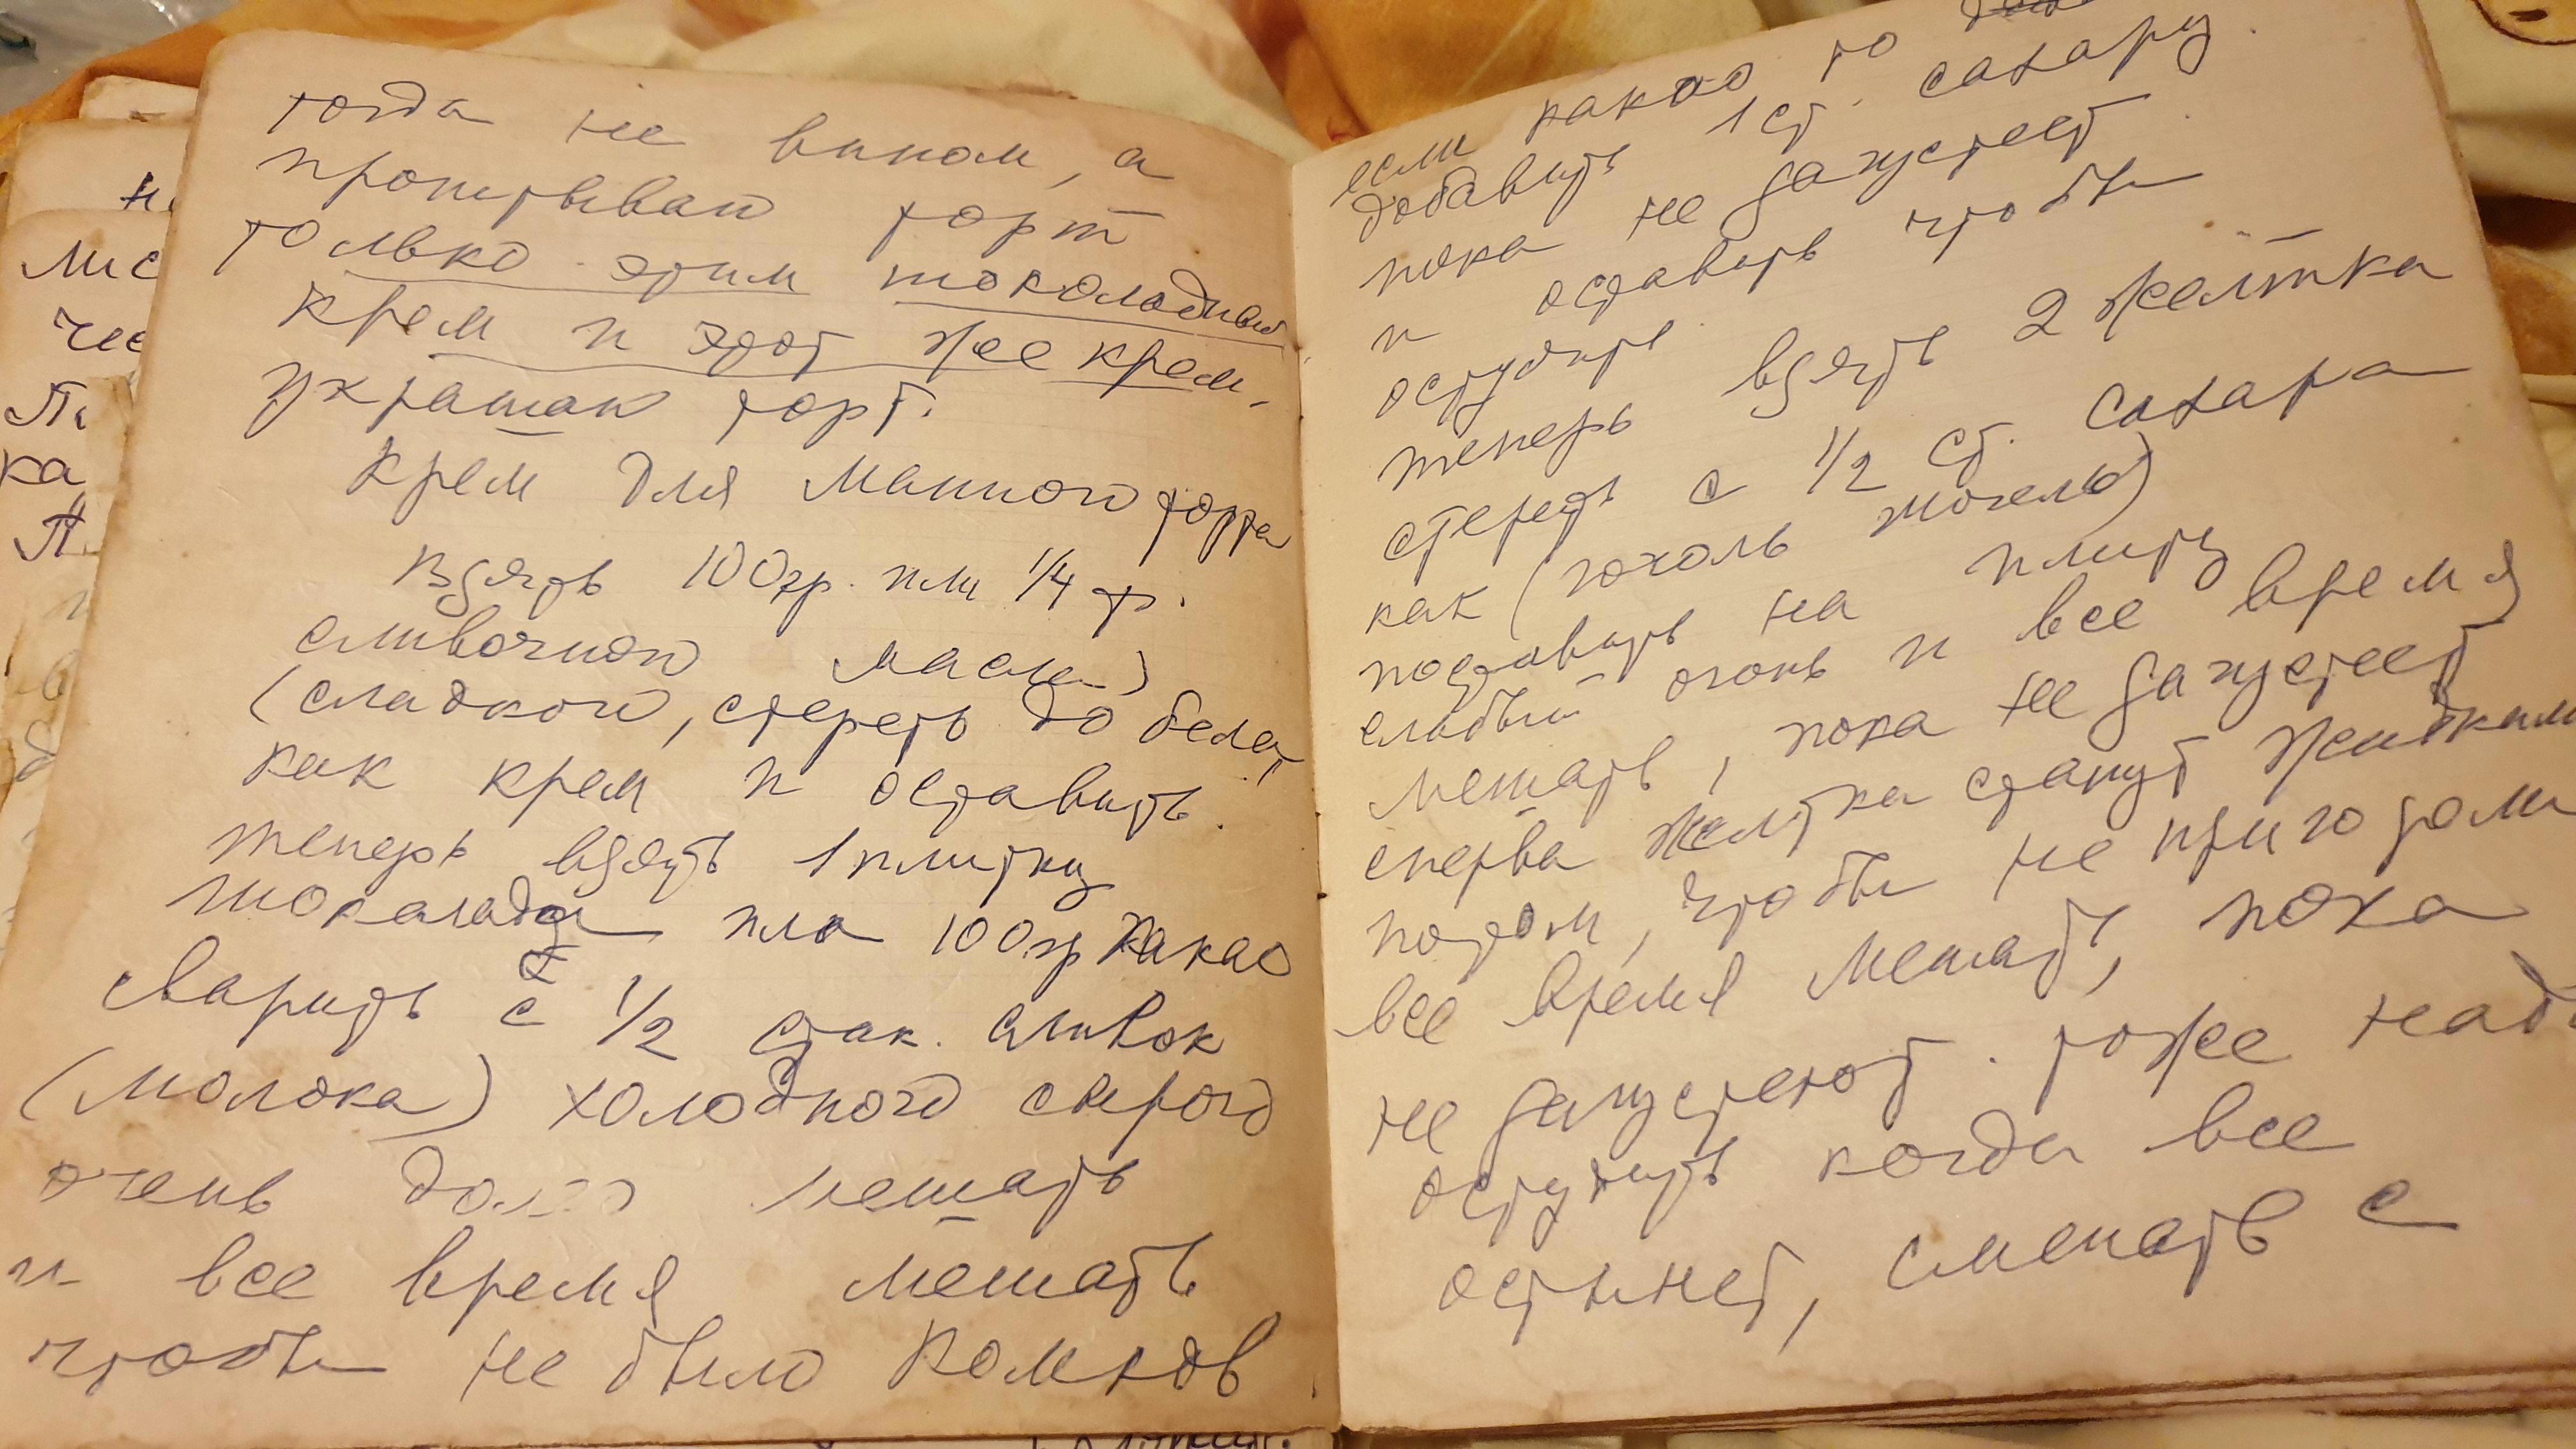 тогда не вином, а
пропитываю торт
только этим шоколадным
крем и этот же крем.
украшаю торт.
Крем для манного торта
Взять 100 гр. или 1/4 ф.
сливочного масла)
(сладкого, стереть до бела,
как крем и оставить.
теперь взять 1 плитку
шокалада или 100 гр какао
сварить с 1/2 стак. сливок
(молока) холодного сырого
очень долго мешать
и все время мешать
чтобы не было комков
если какао то
добавить 1 ст. сахару
пока не загустеет
и оставить чтобы
остудить
теперь взять 2 желтка
стереть с 1/2 ст. сахара
как (гоголь моголь)
поставить на плиту
слабый огонь и все время
мешать, пока не загустеет
сперва желтка станут жидкими
потом, чтобы не пригорали
все время мешать, пока
не загустеют. тоже надо
остудить когда все
остынет, смешать с
лис
чес
ка